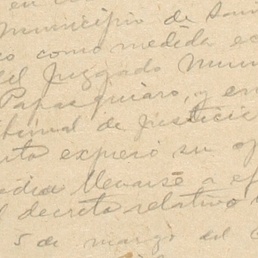 en
Municipio de San
co como medida ec
del Juzgado Muni
Papasquiaro, y en
ibunal de Justici
rto expresó su op
podía llevarse a ef
l decreto relativo
5 de marzo del